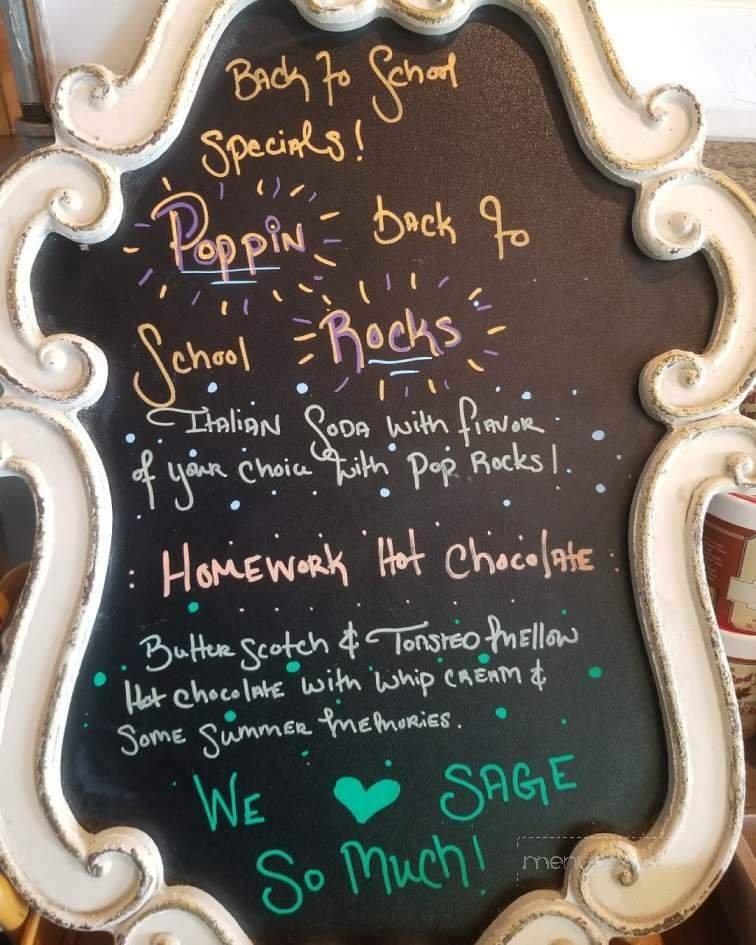 Back to School
Specials!
Poppin Back to
School Rocks
Italian Soda with flavor
of your choice with Pop Rocks!
Homework Hot Chocolate
Butterscotch & Toasted mellow
Hot chocolate with whip cream &
Some Summer memories.
We ♥ SAGE
So Much!
menu